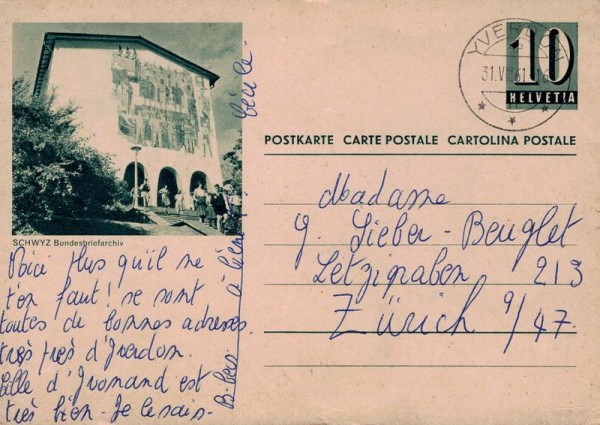 YVERDON
31.VIII.61
10
HELVETIA
POSTKARTE CARTE POSTALE CARTOLINA POSTALE
SCHWYZ Bundesbriefarchiv
Madame
G. Sieber-Beuglet
Letzigraben 213
Zürich 9/47.
Voici plus qu'il ne
t'en faut! se sont
toutes de bonnes adresses
très près d'Yverdon.
Celle d'Yvonand est
très bien. Je le sais.
Cécile.